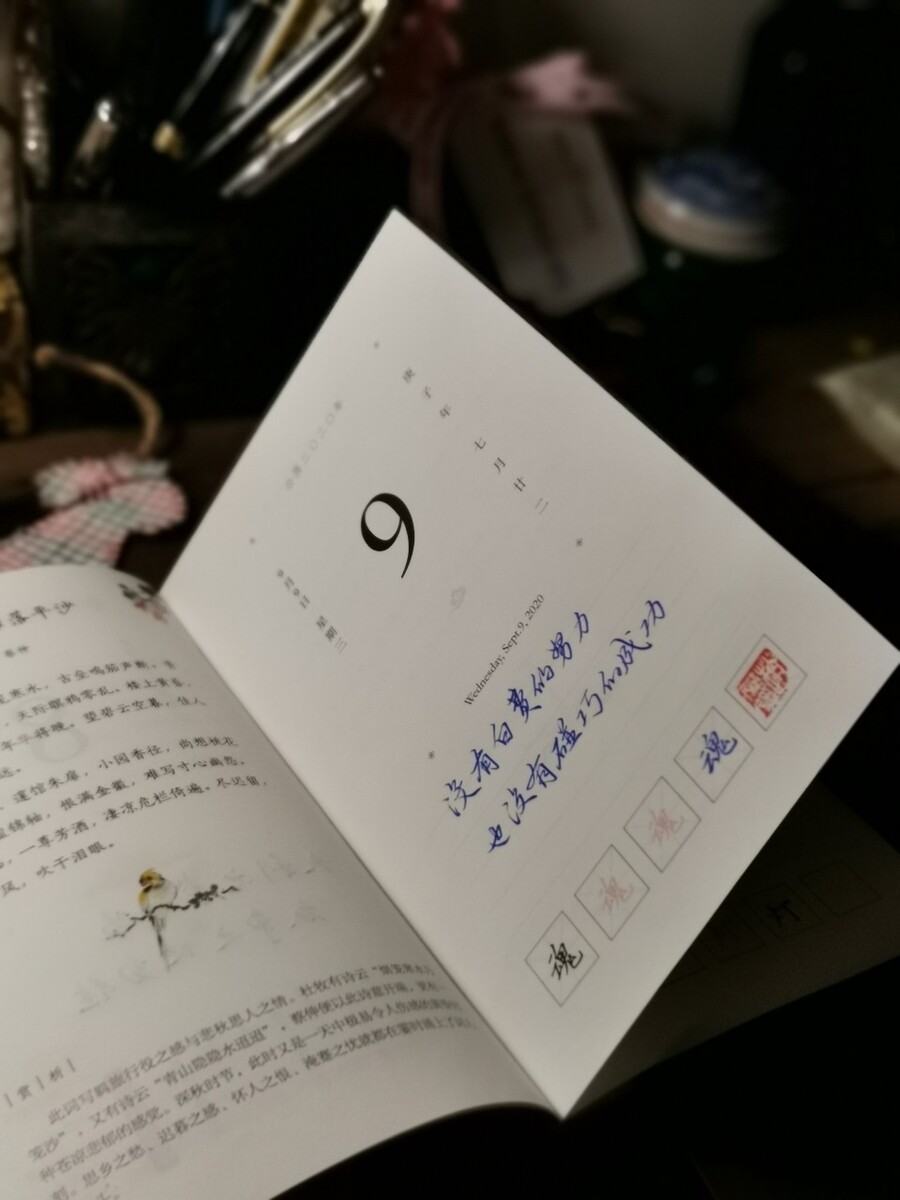 落平沙
蔡伸
寒水，古垒鸣笳声断。青
，天际飘鸦零乱。楼上黄昏，
年华将晚。望碧云空暮，佳人
远。
莲馆朱扉，小园香径，尚想桃花
锦轴，恨满金徽，难写寸心幽怨。
，一尊芳酒，凄凉危栏倚遍。不迟留，
风，吹干泪眼。
｜赏｜析｜
此词写羁旅行役之感与悲秋思人之情。杜牧有诗云“烟笼寒水月
笼沙”，又有诗云“青山隐隐水迢迢”，蔡伸便以此诗意开端，
种苍凉悲郁的感觉。深秋时节，此时又是一天中极易令人伤感的黄昏时
刻，思乡之愁、迟暮之感、怀人之恨、
庚子年 七月廿二
二〇二〇年
9
星期三
Wednesday, Sept.9, 2020
没有白费的努力
也没有碰巧的成功
魂 魂 魂 魂